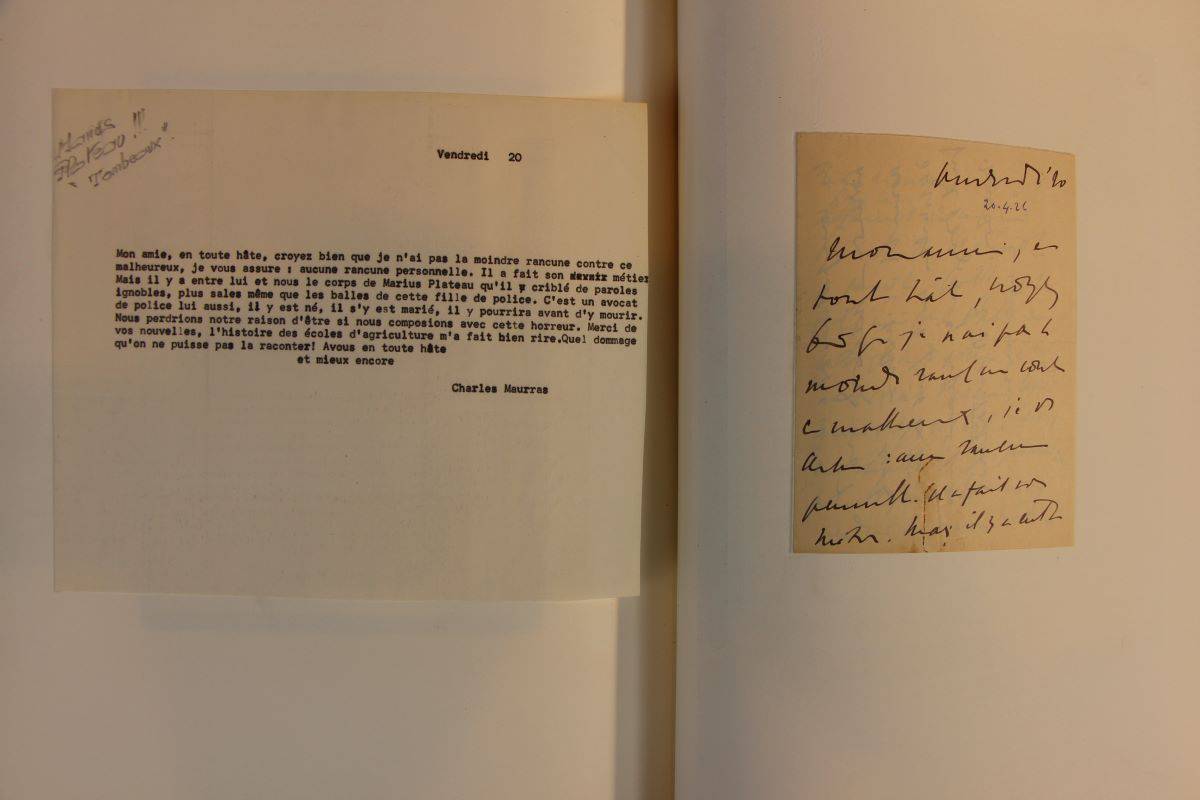 Marius
Plateau !!!
"Tombeaux".
Vendredi 20
Mon amie, en toute hâte, croyez bien que je n'ai pas la moindre rancune contre ce
malheureux, je vous assure : aucune rancune personnelle. Il a fait son métier
Mais il y a entre lui et nous le corps de Marius Plateau qu'il a criblé de paroles
ignobles, plus sales même que les balles de cette fille de police. C'est un avocat
de police lui aussi, il y est né, il s'y est marié, il y pourrira avant d'y mourir.
Nous perdrions notre raison d'être si nous composions avec cette horreur. Merci de
vos nouvelles, l'histoire des écoles d'agriculture m'a fait bien rire.Quel dommage
qu'on ne puisse pas la raconter! Avous en toute hâte
et mieux encore
Charles Maurras
Vendredi 20
20.4.
Mon amie, en
toute hâte, croyez
bien que je n'ai pas la
moindre rancune contre
ce malheureux, je vs
assure : aucune rancune
personnelle. Il a fait son
métier. Mais il y a entre